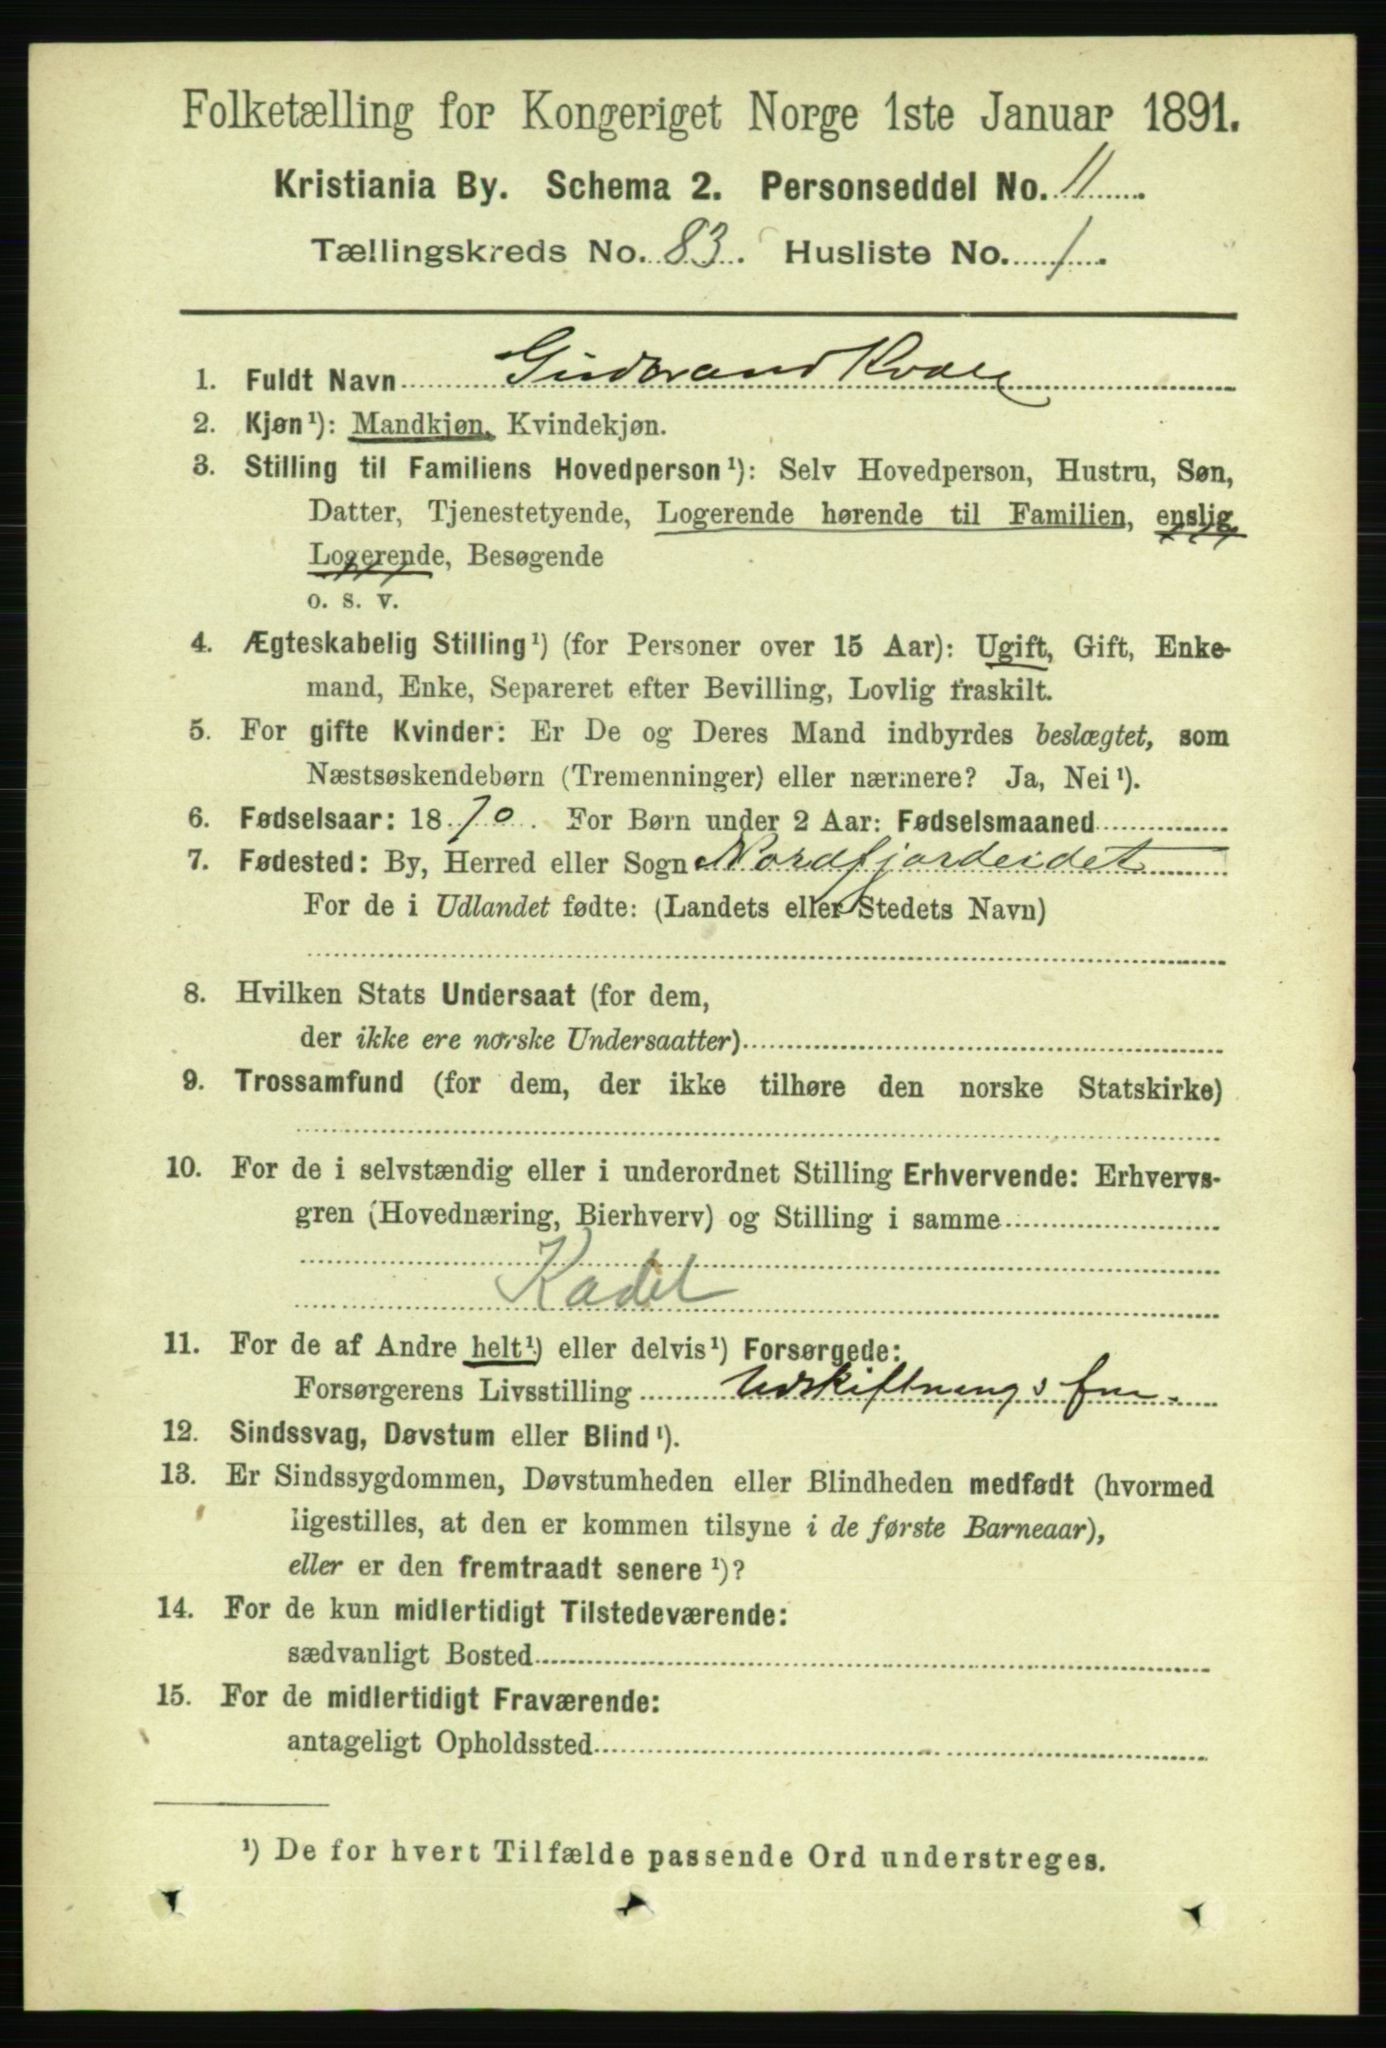 Folketælling for Kongeriget Norge 1ste Januar 1891.
Kristiania By. Schema 2. Personseddel No. 11
Tællingskreds No. 83. Husliste No. 1
1. Fuldt Navn Gudbrand Kvale
2. Kjøn¹): Mandkjøn, Kvindekjøn.
3. Stilling til Familiens Hovedperson¹): Selv Hovedperson, Hustru, Søn,
Datter, Tjenestetyende, Logerende hørende til Familien, enslig
Logerende, Besøgende
o. s. v.
4. Ægteskabelig Stilling¹) (for Personer over 15 Aar): Ugift, Gift, Enke-
mand, Enke, Separeret efter Bevilling, Lovlig fraskilt.
5. For gifte Kvinder: Er De og Deres Mand indbyrdes beslægtet, som
Næstsøskendebørn (Tremenninger) eller nærmere? Ja, Nei¹).
6. Fødselsaar: 1870. For Børn under 2 Aar: Fødselsmaaned
7. Fødested: By, Herred eller Sogn Nordfjordeidet
For de i Udlandet fødte: (Landets eller Stedets Navn)
8. Hvilken Stats Undersaat (for dem,
der ikke ere norske Undersaatter)
9. Trossamfund (for dem, der ikke tilhøre den norske Statskirke)
10. For de i selvstændig eller i underordnet Stilling Erhvervende: Erhvervs-
gren (Hovednæring, Bierhverv) og Stilling i samme
Kadet
11. For de af Andre helt¹) eller delvis¹) Forsørgede:
Forsørgerens Livsstilling Udskiftnings
12. Sindssvag, Døvstum eller Blind¹).
13. Er Sindssygdommen, Døvstumheden eller Blindheden medfødt (hvormed
ligestilles, at den er kommen tilsyne i de første Barneaar),
eller er den fremtraadt senere¹)?
14. For de kun midlertidigt Tilstedeværende:
sædvanligt Bosted
15. For de midlertidigt Fraværende:
antageligt Opholdssted
¹) De for hvert Tilfælde passende Ord understreges.